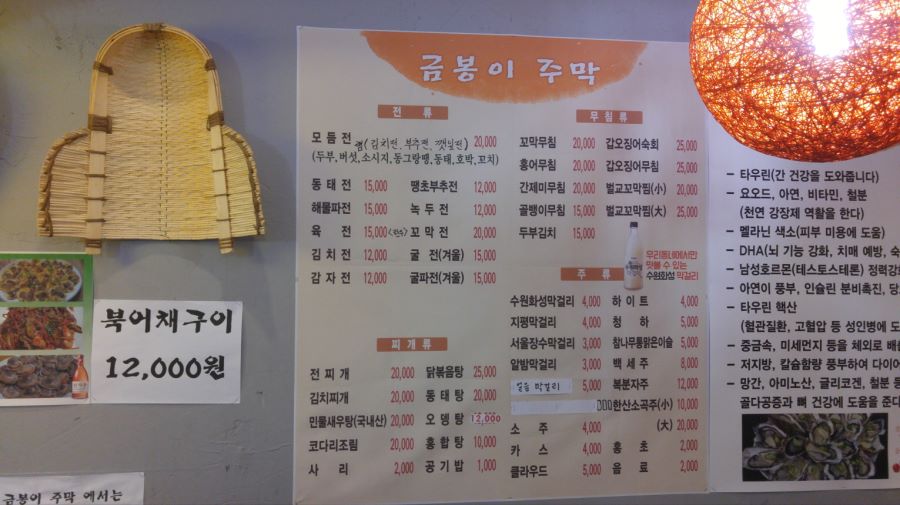 금봉이 주막
전 류
모 둠 전 (김치전, 부추전, 깻잎전) 20,000
(두부,버섯,소시지,동그랑땡,동태,호박,꼬치)
동 태 전 15,000 땡초부추전 12,000
해물파전 15,000 녹 두 전 12,000
육 전 15,000 꼬 막 전 20,000
김 치 전 12,000 굴 전(겨울) 15,000
감 자 전 12,000 굴파전(겨울) 15,000
찌 개 류
전 찌 개 20,000 닭볶음탕 25,000
김치찌개 20,000 동 태 탕 20,000
민물새우탕(국내산) 20,000 오 뎅 탕 12,000
코다리조림 20,000 홍 합 탕 10,000
사 리 2,000 공 기 밥 1,000
무 침 류
꼬막무침 20,000 갑오징어숙회 25,000
홍어무침 20,000 갑오징어무침 25,000
간제미무침 20,000 벌교꼬막찜(小) 20,000
골뱅이무침 15,000 벌교꼬막찜(大) 25,000
두부김치 15,000
우리동네에서만
맛볼 수 있는
수원화성 막걸리
주 류
수원화성막걸리 4,000 하 이 트 4,000
지평막걸리 4,000 청 하 5,000
서울장수막걸리 4,000 참나무통맑은이슬 5,000
알밤막걸리 5,000 백 세 주 8,000
막걸리 5,000 복분자주 12,000
한산소곡주(小) 10,000
소 주 4,000 (大) 20,000
카 스 4,000 홍 초 2,000
클라우드 5,000 음 료 2,000
북어채구이
12,000원
금봉이 주막 에서는
– 타우린(간 건강을 도와줍니다)
– 요오드, 아연, 비타민, 철분
(천연 강장제 역할을 한다)
– 멜라닌 색소(피부 미용에 도움)
– DHA(뇌 기능 강화, 치매 예방, 숙
– 남성호르몬(테스토스테론) 정력강화
– 아연이 풍부, 인슐린 분비촉진, 당
– 타우린 핵산
(혈관질환, 고혈압 등 성인병에 도
– 중금속, 미세먼지 등을 체외로 배출
– 저지방, 칼슘함량 풍부하여 다이어
– 망간, 아미노산, 글리코겐, 철분 등
골다공증과 뼈 건강에 도움을 준다